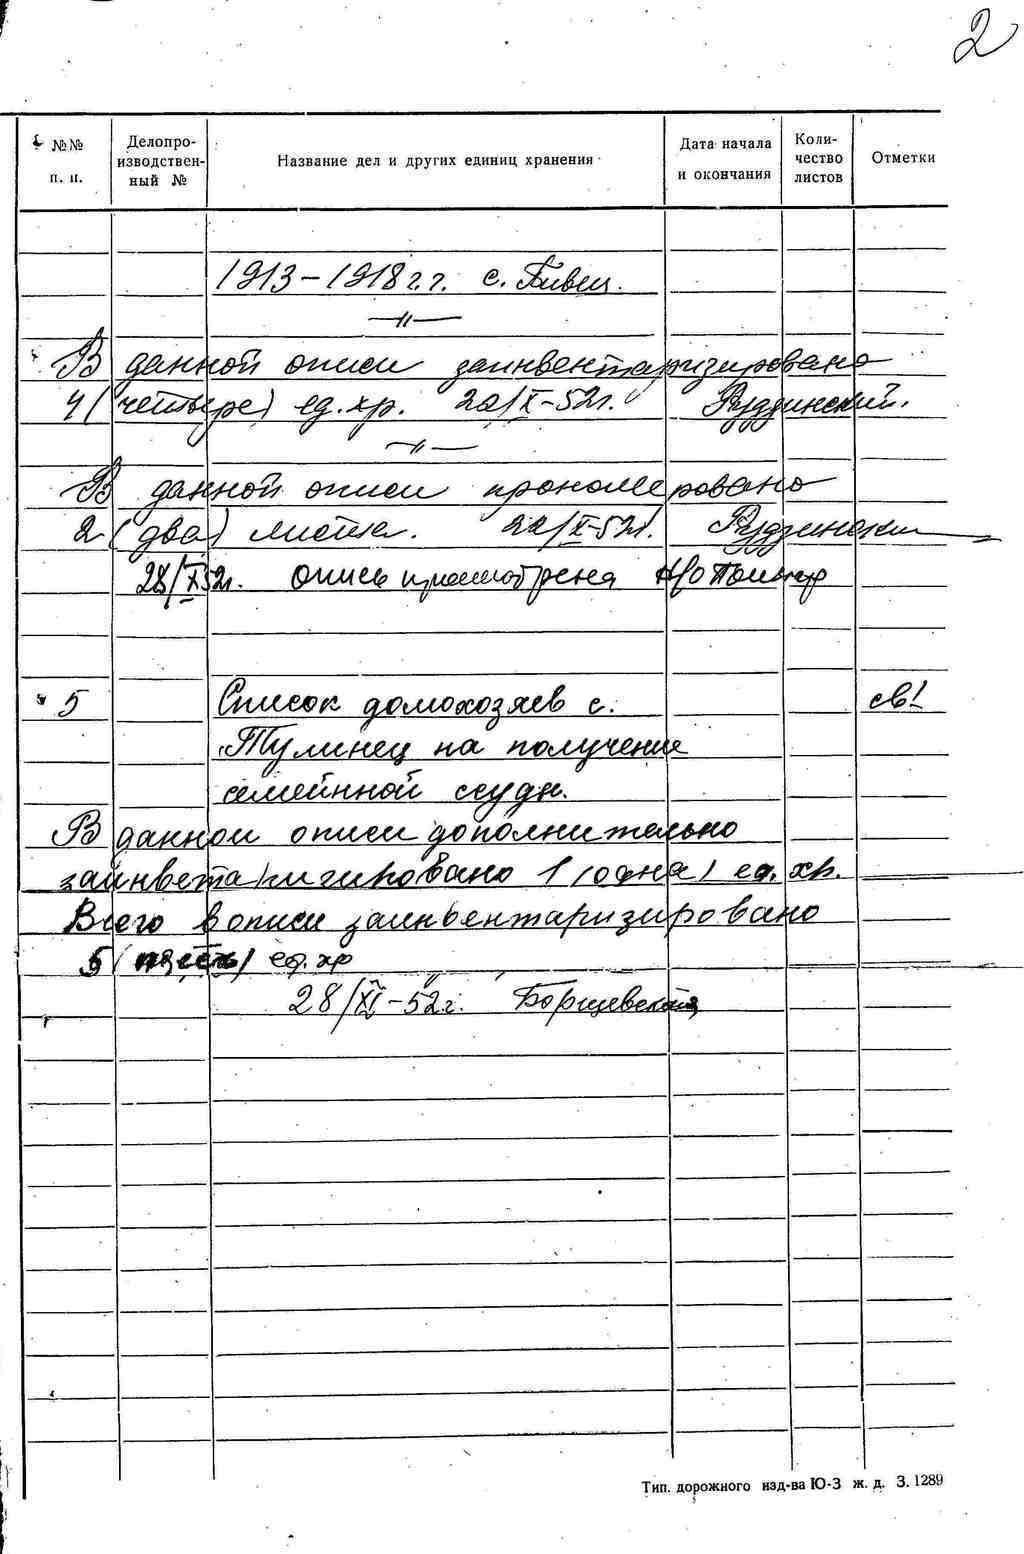 2
№№ п. п.
Делопроизводственный №
Название дел и других единиц хранения
Дата начала и окончания
Количество листов
Отметки
1913–1918 г.г. с. Пивец.
—"—
В данной описи заинвентаризировано
4 (четыре) ед. хр. 22/X–52г. Рудзинский.
—"—
В данной описи прономеровано
2 (два) листа. 22/X–52г. Рудзинский
28/X 52г. опись просмотрена
5 Список домохозяев с. св!
Тулинец на получение
семейнной ссуды.
В данной описи дополнительно
заинвентаризировано 1 (одна) ед. хр.
Всего в описи заинвентаризировано
5 (пять) ед. хр
28/XI–52г. Борщевская
Тип. дорожного изд-ва Ю-З ж. д. З. 1289